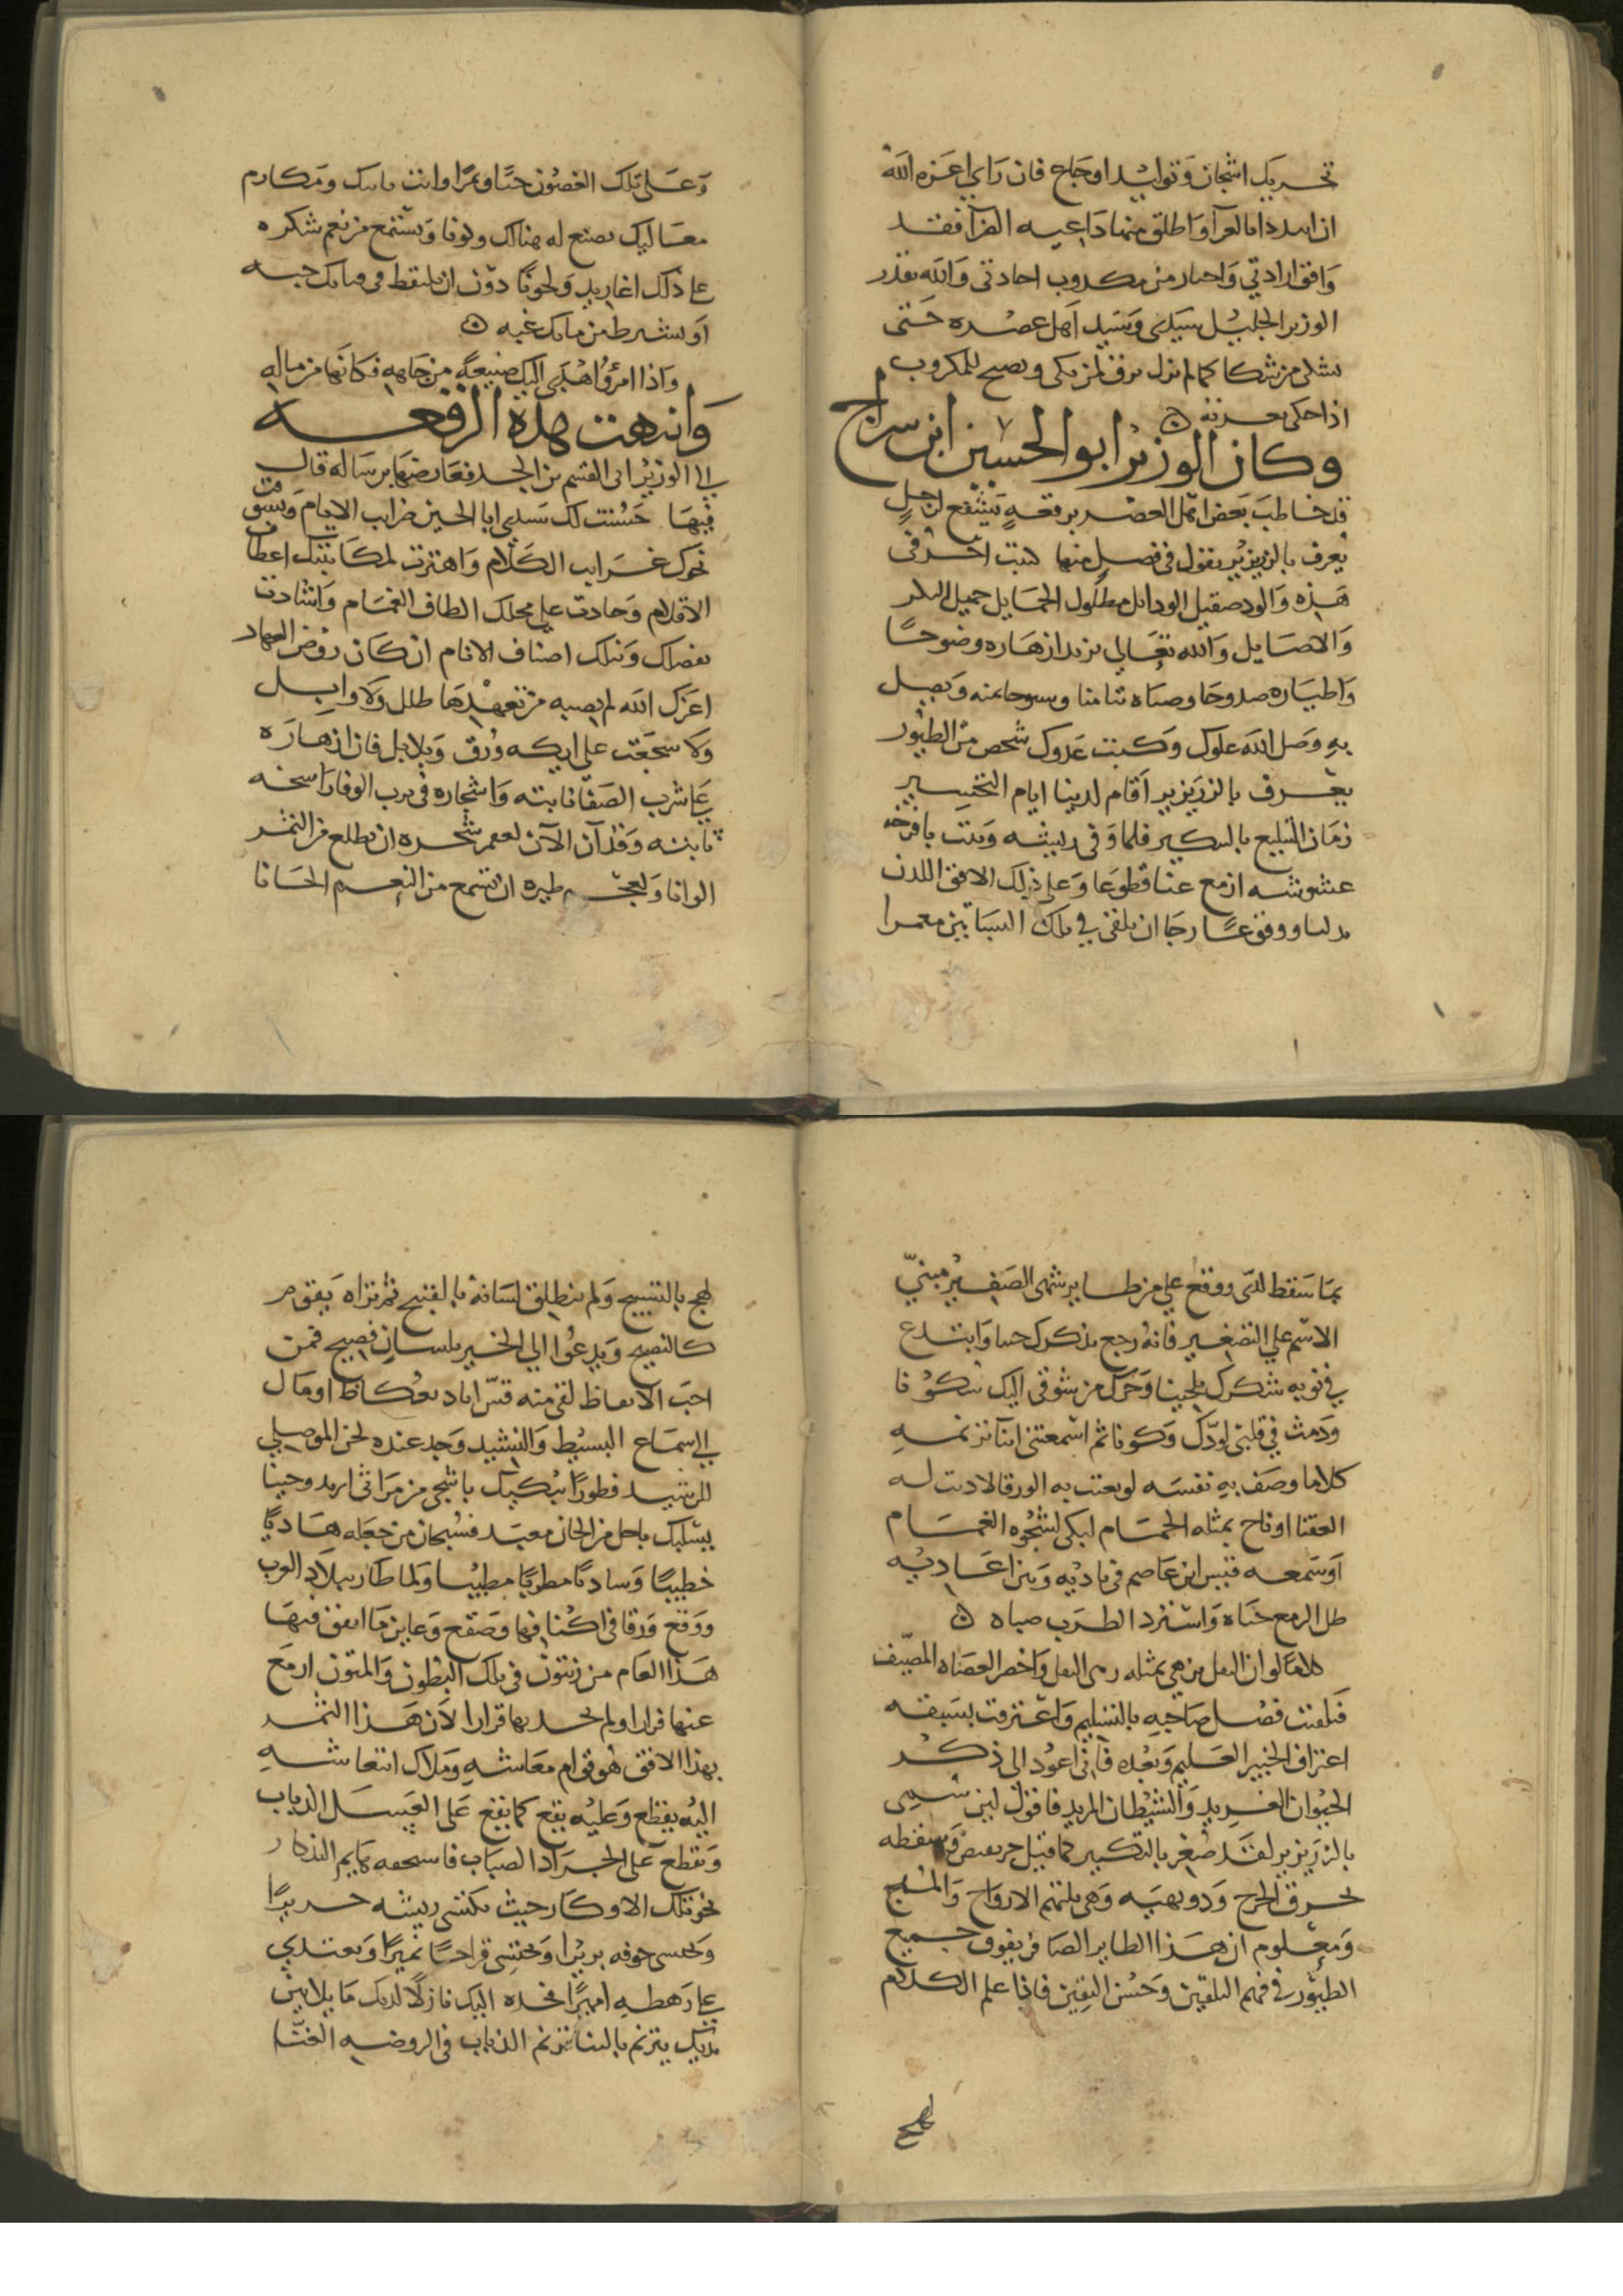 تحريك اشجان وتوليد اوجاع فان راي اعزه الله
ان بالعرا واطلق داعيه الفرا فقد
وافق ارادتي من اجادتي والله بقدر
الوزير الجليل سيدي وسيد اهل عصره حتى
من شكا كما لم نزل نرق لمن بكى ونصيح للمكروب
اذا حكى
وكان الوزير ابو الحسين ابن سراج
قد خاطب بعض اهل العصر برقعة يشفع لرجل
يعرف بالزريزير يقول في فصل منها كتبت احرفي
هذه والود صقيل الوذايل مطلول الخمايل جميل البكر
والاصايل والله تعالى يزيد ازهاره وضوحا
واطياره صدوحا وصباه
به وصل الله علوك وكبت عدوك شخص من الطيور
يعرف بالزريزير اقام لدينا ايام التحسير
زمان التبليغ بالشكير فلما وفى ريشه ونبت بافرخه
عشوشه ازمع عنا قطوعا وعلى ذلك الافق اللدن
تدليا ووقوعا رجا ان يلقى في تلك البساتين معمرا
وعلى تلك الغصون حبا وثمرا وانت بنبلك ومكارم
معاليك تصنع له هنالك وكونا وتستمع من نغم شكره
على ذلك اغاريد ولحونا دون ان يلتقط في حبه
او يشترط من مايك غبه
واذا امرؤ اهدى اليك صنيعة من جاهه فكانها من ماله
وانتهت هذه الرقعه
الى الوزير ابي القسم بن الجد فعارضها برساله قال
فيها حسنت لك سيدي ابا الحسين ضرايب الايام وتشوقت
نحوك غرايب الكلام واهتزت لمكاتبتك اعطاف
الاقلام وجادت على محلك الطاف الغمام واشادت
بفضلك ونبلك اصناف الانام ان كان روض العهاد
اعزك الله لم يصبه من تعهدها طلل ولا وابل
ولا سجعت على ايكه ورق وبلابل فان ازهاره
على شرب الصفا نابته واشجاره في ترب الوفا راسخه
ثابته وقد آن الآن لعقم شجره ان تطلع من الثمر
الوانا ولعجم طيره ان تسمع من النغم الحانا
بما سقط لدى ووقع على من طاير شهى الصفير مبنى
الاسم على التصغير فانه رجع بذكرك حينا وابتدع
في نوبه شكرك تلحينا وحرك من شوقي اليك سكونا
ودمث في قلبي لودك وكونا ثم اسمعني اثنا ترنمه
كلاما وصف به نفسه لو بعثت به الورقا لادت له
العنقا او ناح بمثله الحمام لبكى لشجوه الغمام
او سمعه قيس ابن عاصم في ناديه وبين اعاديه
حل الرمح حباه واستزد الطرب صباه
كلاما لو ان البقل يزهى بمثله زهى البقل واخضر العصاه المصيف
فتلقيت فضل صاحبه بالتسليم واعترفت بسبقه
اعتراف الخبير العليم وبعده فاني اعود الى ذكر
الحيوان الغريد والشيطان المريد فاقول لين سمى
بالزريزير لقد صغر بالتكبير كما قيل حريقيص وسقطه
يحرق الحرج ودويهيه وهي تلتهم الارواح والمهج
ومعلوم ان هذا الطاير الصافر يفوق جميع
الطيور في فهم التلقين وحسن اليقين فاذا علم الكلام
لهج
لهج بالتسبيح ولم ينطلق لسانه بالقبيح ثم تراه يقوم
كالنصيح ويدعوا الى الخير بلسان فصيح فمن
احب الاتعاظ لقى منه قس اياد بعكاظ او مال
الى سماع البسيط والنشيد وجد عنده لحن الموصلي
للرشيد فطورا يبكيك باشجى من مراثي اربد وحينا
يسليك باحلى من الحان معبد فسبحان من جعله هاديا
خطيبا وشاديا مطربا مطيبا ولما طار ببلاد الغرب
ووقع ورقا في اكنافها وصقع وعاين ما اتفق فيها
هذا العام من زيتون في تلك البطون والمتون ازمع
عنها فرارا ولم يجد بها قرارا لان هذا الثمر
بهذا الافق هو قوام معاشه وملاك انتعاشه
اليه يقطع وعليه يقع كما يقع على العسل الذباب
وتقطع على الجراد الصياب فاستخفه هايم التذكار
نحو تلك الاوكار حيث يكتسى ريشه حريرا
ويحتسى جوفه بريرا ويحتسى قراحا نميرا ويغتدي
على رهطه اميرا فخذه اليك نازلا لديك ماثلا بين
يديك يترنم بالثنا ترنم الذباب في الروضه الغنا